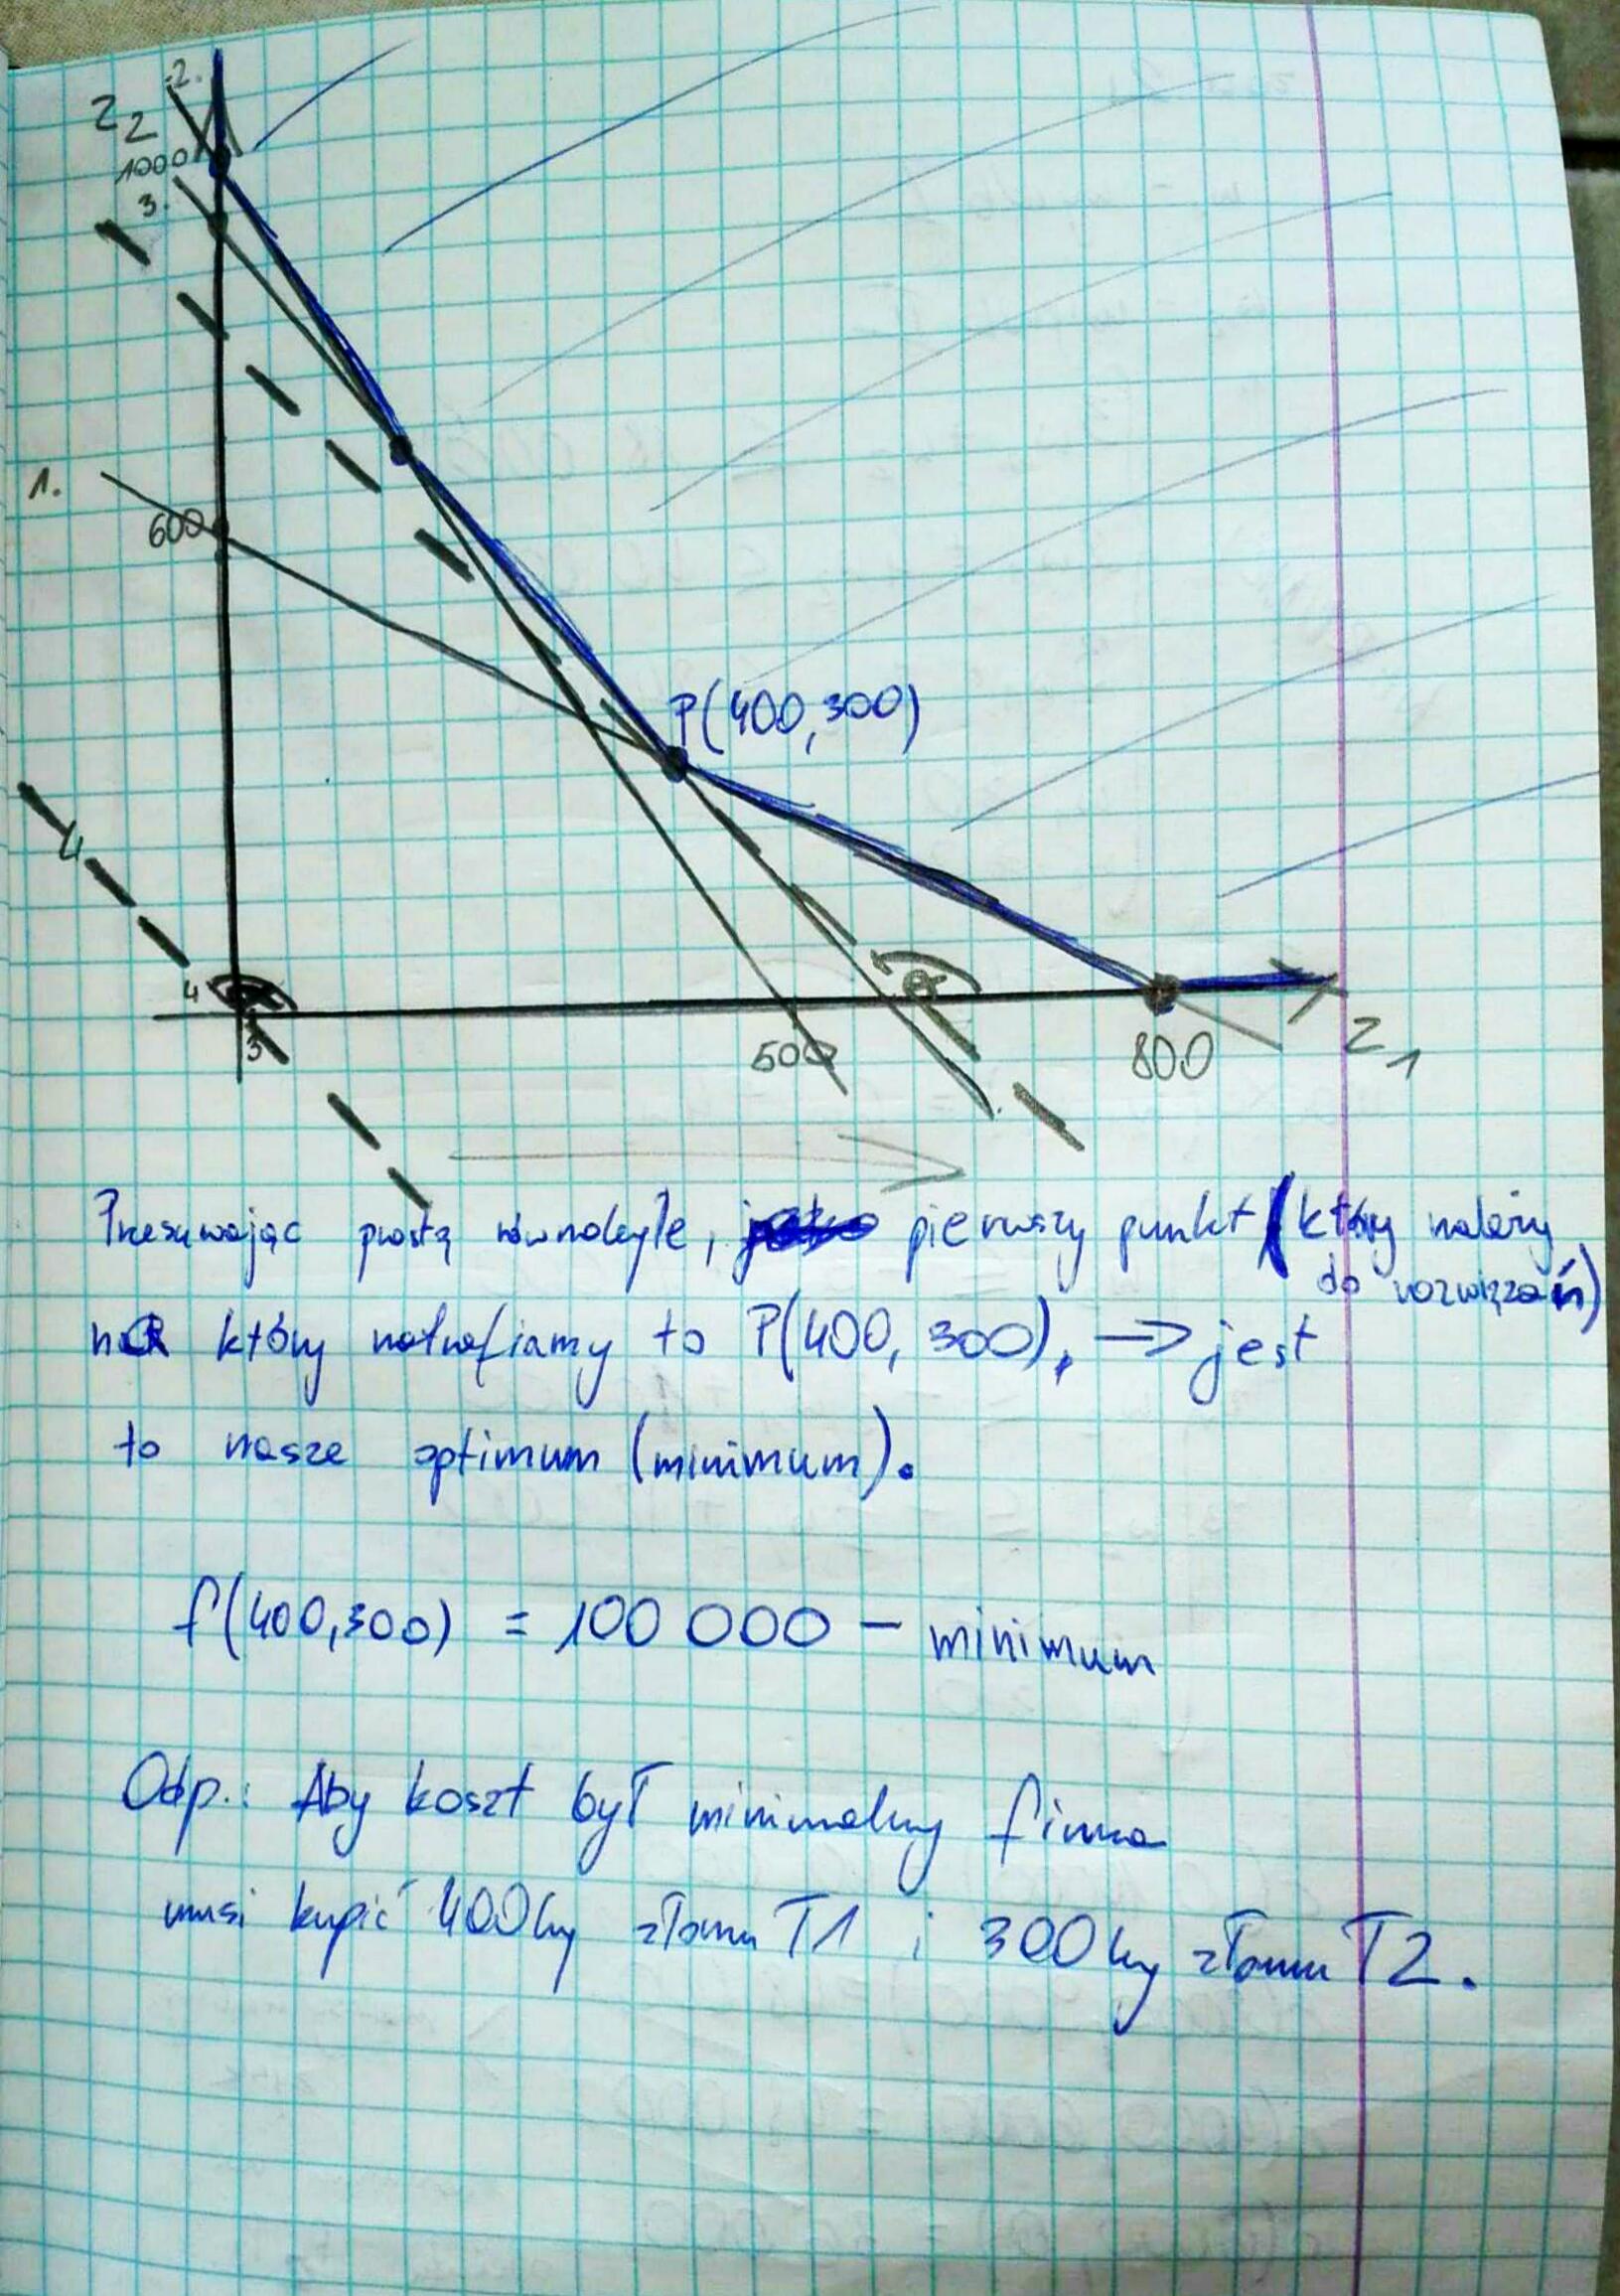 2.
Z2
1000
3.
1.
600
P(400,300)
4
4
α
3
500
800
Z1
Przesuwając prostą równolegle, pierwszy punkt (który należy
do rozwiązań)
na który natrafiamy to P(400, 300), → jest
to nasze optimum (minimum).
f(400,300) = 100 000 – minimum
Odp.: Aby koszt był minimalny firma
musi kupić 400kg złomu T1 i 300kg złomu T2.